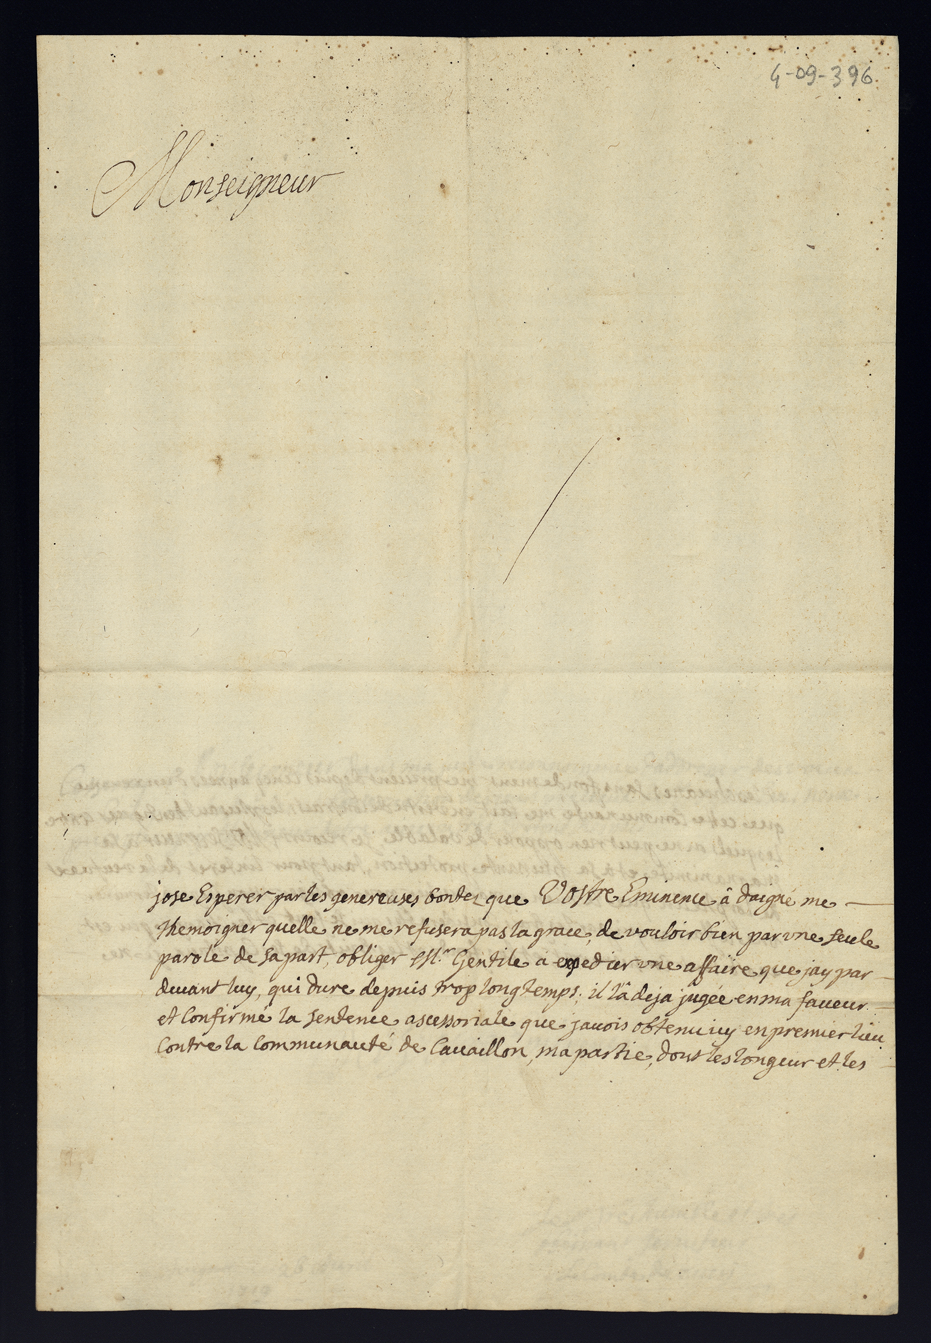 4-09-396.
Monseigneur
jose Esperer par les genereuses bontez que Vostre Eminence â daigné me
themoigner quelle ne me refusera pas la grace de vouloir bien par une seule
parole de sa part, obliger Mr. Gentile a expedier une affaire que jay par
devant luy, qui dure depuis trop long temps; il l'â deja jugée en ma faveur
et Confirmé la sentence asessoriale que javois obtenu icy en premier lieu
Contre la Communauté de Cavaillon, ma partie, dont les longeur et les